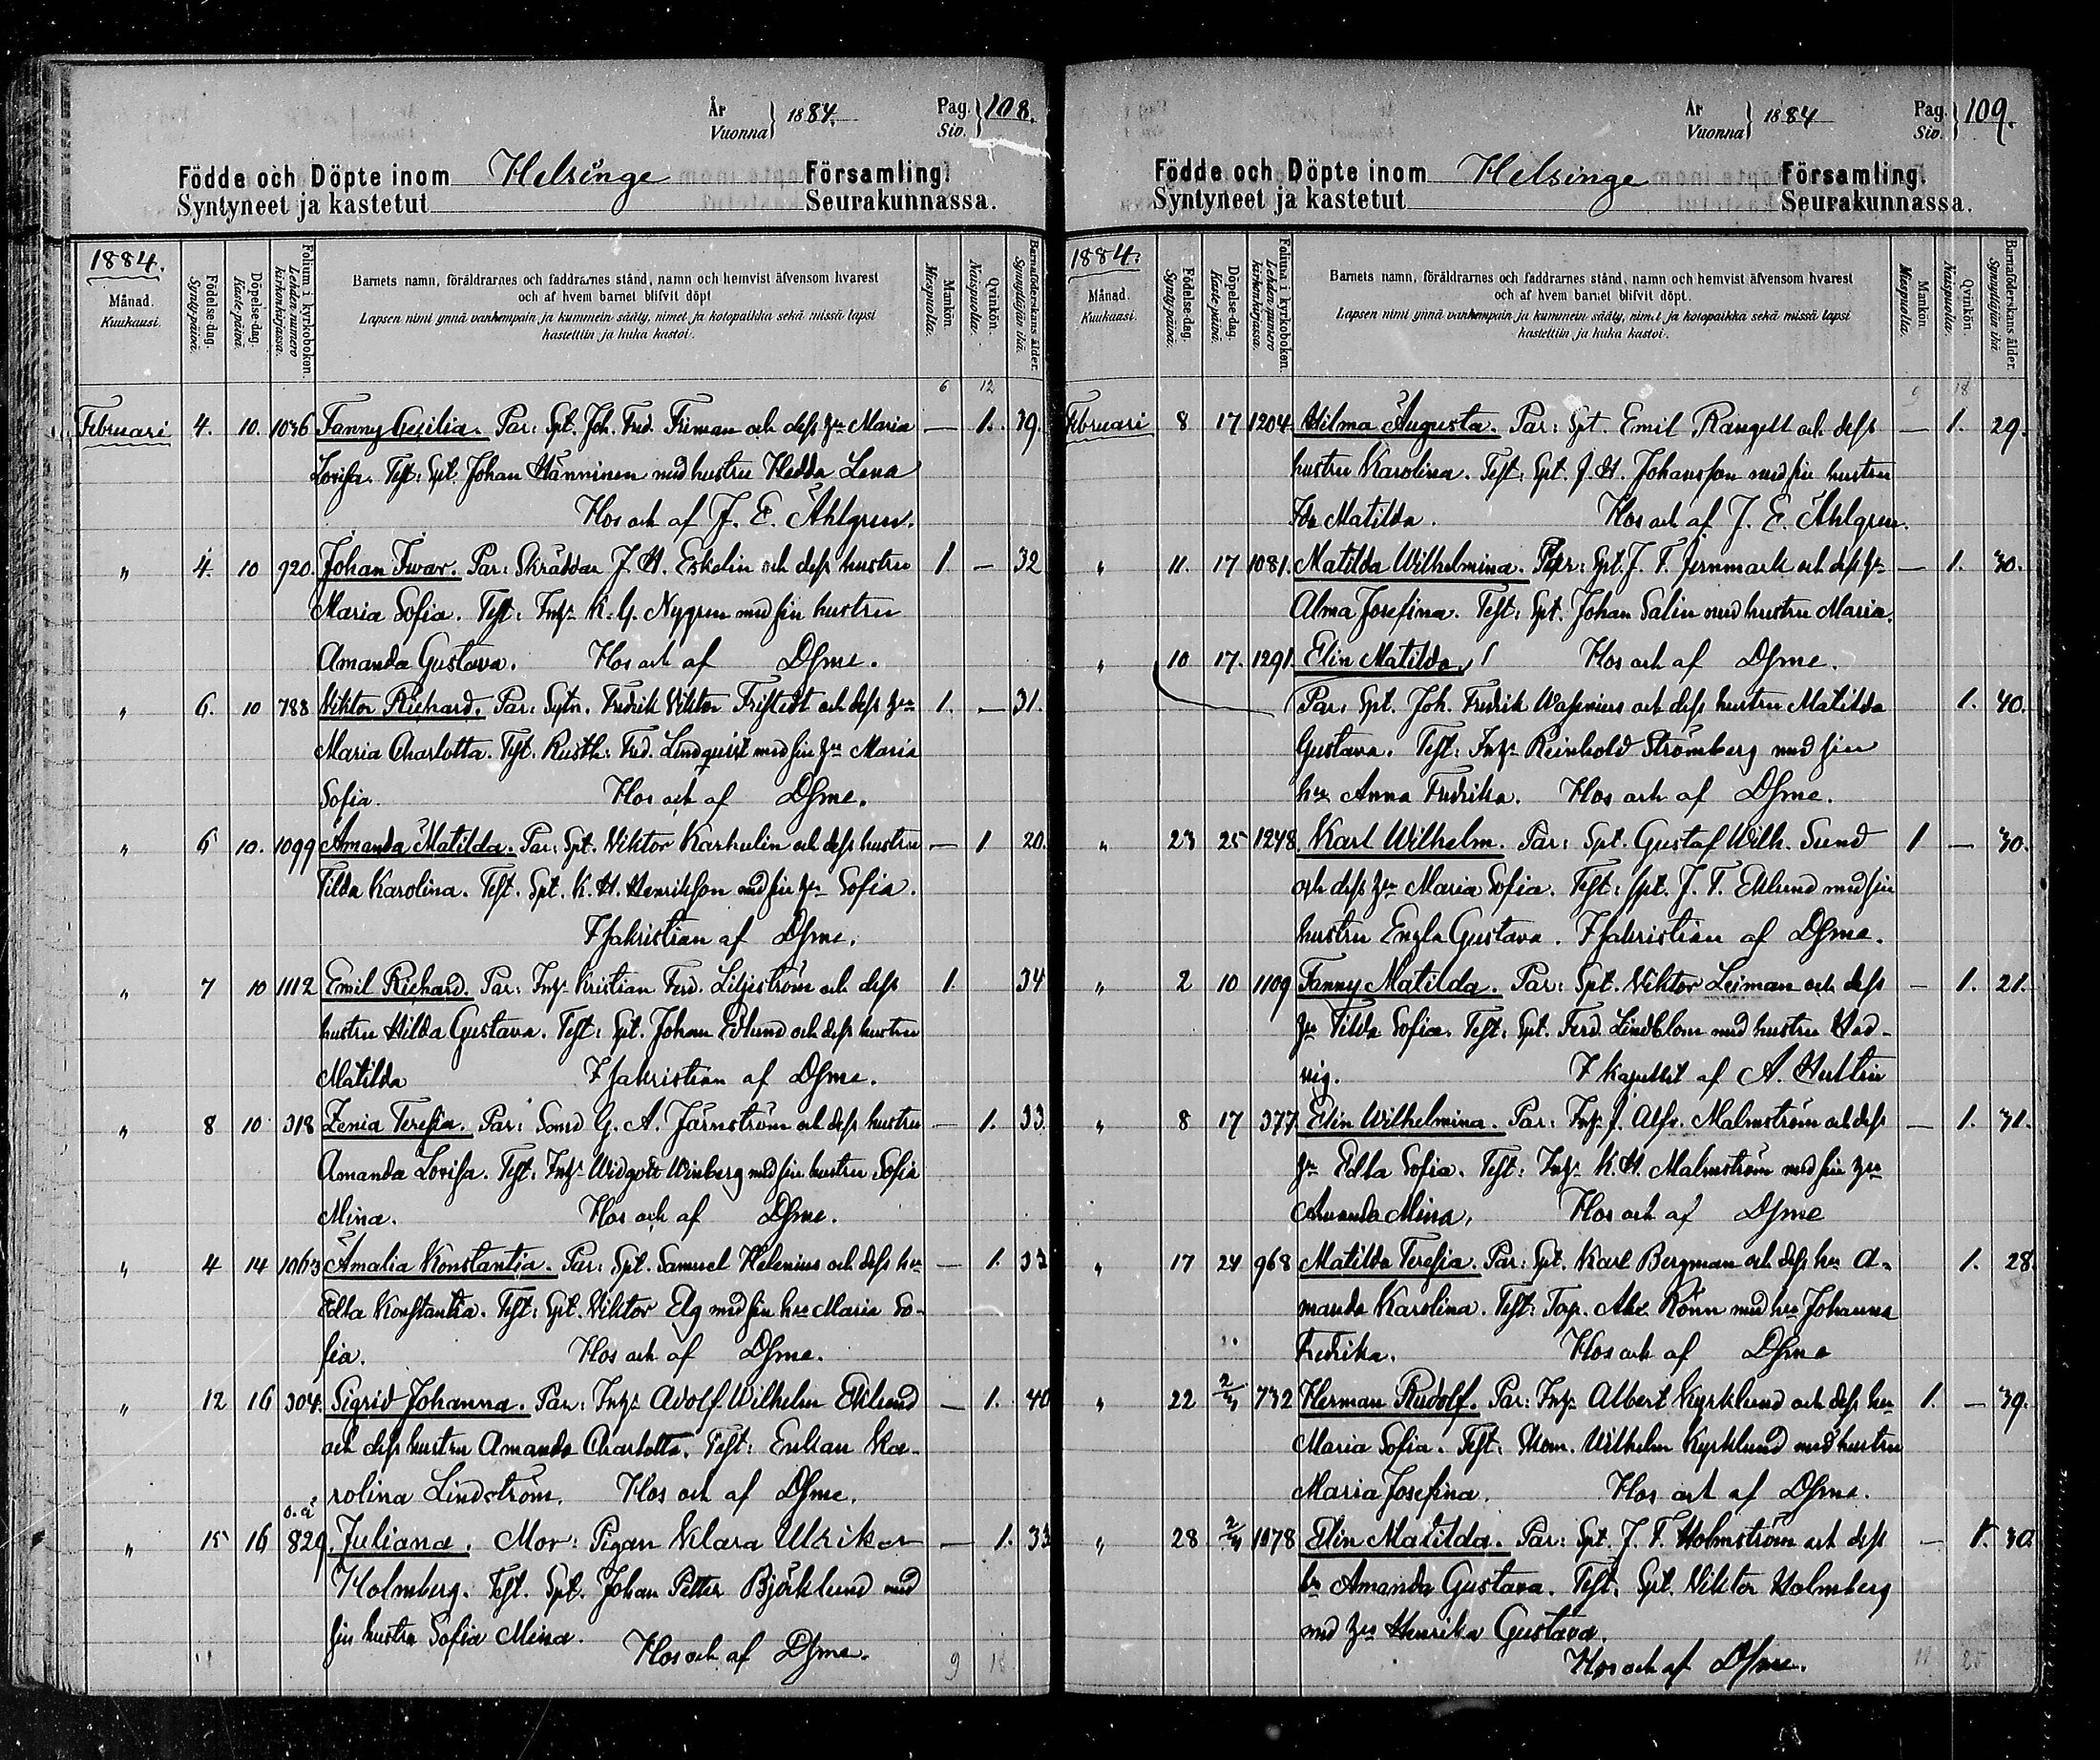 År
Vuonna } 1884.
Pag.
Siv. } 108.
Födde och Döpte inom Helsinge Församling
Syntyneet ja kastetut Seurakunnassa.
1884.
Månad.
Kuukausi.
Födelse-dag.
Syntypäivä.
Döpelse-dag.
Kastepäivä.
Folium i kyrkoboken.
Lehden numero kirkonkirjassa.
Barnets namn, föräldrarnes och faddrarnes stånd, namn och hemvist äfvensom hvarest
och af hvem barnet blifvit döpt
Lapsen nimi ynnä vanhempain ja kummein sääty, nimet ja kotopaikka sekä missä lapsi
kastettiin ja kuka kastoi.
Mankön.
Miespuolia.
Qvinkön.
Naispuolia.
Barnaföderskans ålder.
Synnyttäjän ikä.
6 12
Februari 4. 10. 1036 Fanny Cecilia. Par: Spt. Joh. Fred. Friman och dess hu Maria — 1. 39.
Lovisa. Test: Spt. Johan Hänninen med hustru Hedda Lena
Hos och af J. E. Ahlgren.
" 4. 10 920. Johan Ivar. Par: Skräddar J. H. Eskelin och dess hustru 1 — 32
Maria Sofia. Test: Inhs K. G. Nygren med sin hustru
Amanda Gustava. Hos och af Dsme.
" 6. 10 788 Viktor Richard. Par: Sytn. Fredrik Viktor Fristedt och dess hu 1. — 31.
Maria Charlotta. Test. Rusth: Fred. Lindqvist med sin hu Maria
Sofia. Hos och af Dsme.
" 6 10. 1099 Amanda Matilda. Par: Spt. Viktor Karhulin och dess hustru — 1 20.
Tilda Karolina. Test. Spt. K. H. Henriksson med sin hu Sofia.
I sakristian af Dsme.
" 7 10 1112 Emil Richard. Par: Inhs Kristian Ferd. Liljeström och dess 1. 34
hustru Hilda Gustava. Test: Spt. Johan Edlund och dess hustru
Matilda I sakristian af Dsme.
" 8 10 318 Zenia Teresia. Par: Somd G. A. Järnström och dess hustru — 1. 33.
Amanda Lovisa. Test: Inhs Widgott Winberg med sin hustru Sofia
Mina. Hos och af Dsme.
" 4 14 1063 Amalia Konstantia. Par: Spt. Samuel Helenius och dess hu — 1. 33
Edla Konstantia. Test: Spt. Viktor Elg med sin hu Maria So-
fia. Hos och af Dsme.
" 12 16 304. Sigrid Johanna. Par: Inhs Adolf Wilhelm Eklund — 1. 40
och dess hustru Amanda Charlotta. Test: Enkan Ka-
rolina Lindström. Hos och af Dsme.
o. ä
" 15 16 829. Juliana. Mor: Pigan Klara Ulrika — 1. 33
Holmberg. Test. Spt. Johan Petter Björklund med
sin hustru Sofia Mina.
Hos och af Dsme.
9 18
År
Vuonna } 1884
Pag.
Siv. } 109.
Födde och Döpte inom Helsinge Församling.
Syntyneet ja kastetut Seurakunnassa.
1884.
Månad.
Kuukausi.
Födelse-dag.
Syntypäivä.
Döpelse-dag.
Kastepäivä.
Folium i kyrkoboken.
Lehden numero kirkonkirjassa.
Barnets namn, föräldrarnes och faddrarnes stånd, namn och hemvist äfvensom hvarest
och af hvem barnet blifvit döpt.
Lapsen nimi ynnä vanhempain ja kummein sääty, nimet ja kotopaikka sekä missä lapsi
kastettiin ja kuka kastoi.
Mankön
Miespuolia.
Qvinkön.
Naispuolia.
Barnaföderskans ålder.
Synnyttäjän ikä.
9 18
Februari 8 17 1204. Hilma Augusta. Par: Spt. Emil Rangell och dess — 1. 29.
hustru Karolina. Test: Spt. J. H. Johansson med sin hustru
Ida Matilda. Hos och af J. E. Ahlgren.
" 11. 17 1081. Matilda Wilhelmina. Par: Spt. J. F. Jernmark och dess hu — 1. 30.
Alma Josefina. Test: Spt. Johan Salin med hustru Maria.
" 10 17. 1291. Elin Matilda. Hos och af Dsme.
Par: Spt. Joh. Fredrik Wasenius och dess hustru Matilda 1. 40.
Gustava. Test: Inhs Reinhold Strömberg med sin
hu Anna Fredrika. Hos och af Dsme.
" 23 25 1248 Karl Wilhelm. Par: Spt. Gustaf Wilh. Sund 1 — 30.
och dess hu Maria Sofia. Test: Spt. J. F. Eklund med sin
hustru Engla Gustava. I sakristian af Dsme.
" 2 10 1109 Fanny Matilda. Par: Spt. Viktor Leiman och dess — 1. 21.
hu Tilda Sofia. Test: Spt. Ferd. Lindblom med hustru Hed-
vig. I kapellet af A. Hultin
" 8 17 377. Elin Wilhelmina. Par: Inhs J. Alfr. Malmström och dess — 1. 31.
hu Edla Sofia. Test: Inhs K. H. Malmström med sin hu
Amanda Mina. Hos och af Dsme
" 17 24 968 Matilda Teresia. Par: Spt. Karl Bergman och dess hu A- 1. 28.
manda Karolina. Test: Torp. Alex. Rönn med hu Johanna
Fredrika. Hos och af Dsme
" 22 2/3 732 Herman Rudolf. Par: Inhs Albert Kyrklund och dess hu 1. — 39.
Maria Sofia. Test: Wilhelm Kyrklund med hustru
Maria Josefina. Hos och af Dsme.
" 28 2/3 1078 Elin Matilda. Par: Spt. J. F. Holmström och dess — 1. 30.
hu Amanda Gustava. Test: Spt. Viktor Holmberg
med hu Henrika Gustava.
Hos och af Dsme.
11 25